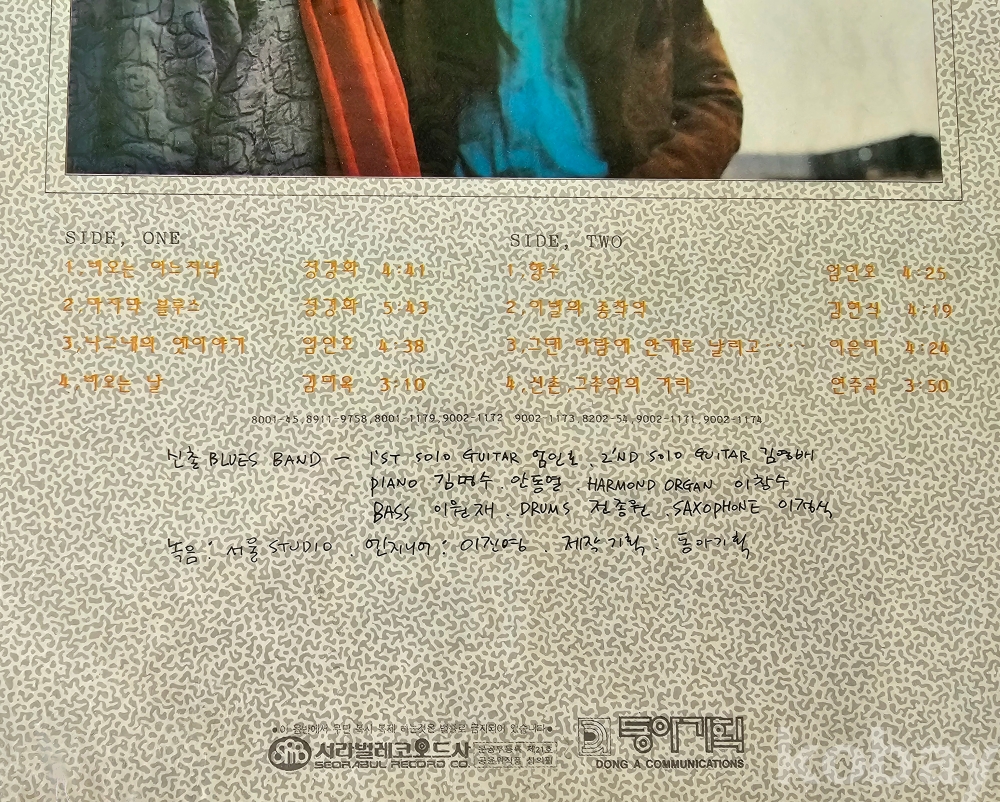 SIDE, ONE
1,비오는 어느저녁 정경화 4:41
2,마지막 블루스 정경화 5:43
3,나그네의 옛이야기 엄인호 4:38
4,비오는 날 김미옥 3:10
SIDE, TWO
1,향수 엄인호 4:25
2,이별의 종착역 김현식 4:19
3,그댄 바람에 안개로 날리고 이은미 4:24
4,신촌,그추억의 거리 연주곡 3:50
8001-45,8911-9758,8001-1179,9002-1172 9002-1173,8202-54,9002-1171,9002-1174
신촌 BLUES BAND - 1'ST SOLO GUITAR 엄인호. 2'ND SOLO GUITAR 김영배
PIANO 김명수. 안동열. HARMOND ORGAN 이창수
BASS 이원재. DRUMS 전종원. SAXOPHONE 이정식
녹음: 서울 STUDIO. 엔지니어: 이진영. 제작기획: 동아기획
●이 음반에서 무단 복사 복제 하는것은 법률로 금지되어 있습니다●
SRB 서라벌레코오드사
SEORABUL RECORD CO.
문공부등록 제21호
공윤위직품 심의필
동아기획
DONG A COMMUNICATIONS
kobay